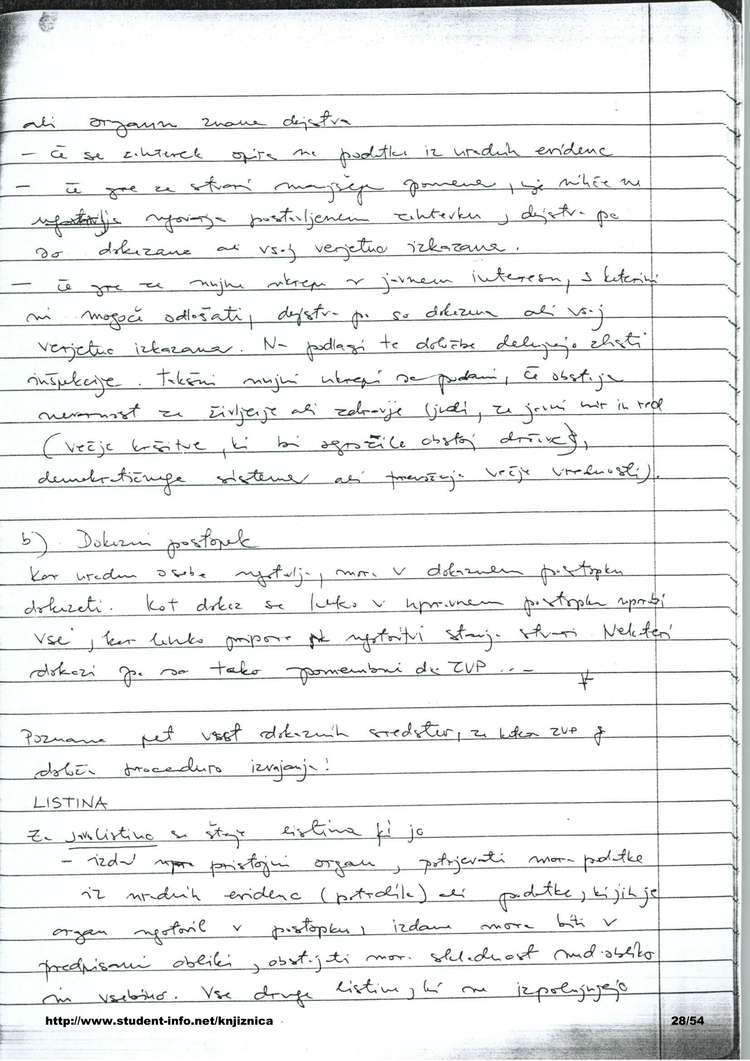 ali organu znana dejstva
– če se zahtevek opira na podatke iz uradnih evidenc
– če gre za stvari manjšega pomena, nihče ne
ugovarja postavljenem zahtevku, dejstva pa
so dokazana ali vsaj verjetno izkazana.
– če gre za nujne ukrepe v javnem interesu, s katerimi
ni mogoče odlašati, dejstva pa so dokazana ali vsaj
verjetno izkazana. Na podlagi te določbe delujejo zlasti
inšpekcije. Takšni nujni ukrepi so podani, če obstaja
nevarnost za življenje ali zdravje ljudi, za javni mir in red
(večje kršitve, ki bi ogrožile obstoj države,
demokratičnega sistema ali premoženja večje vrednosti).
b) Dokazni postopek
Kar uradna oseba ugotavlja, mora v dokaznem postopku
dokazati. Kot dokaz se lahko v upravnem postopku uporabi
vse, kar lahko pripore ugotoviti stanje stvari. Nekateri
dokazi pa so tako pomembni da ZUP ...
Poznamo pet vrst dokaznih sredstev, za katera ZUP
določa proceduro izvajanja!
LISTINA
Za jav.listino se šteje listina ki jo
– izda pristojni organ, potrjevati mora podatke
iz uradnih evidenc (potrdila) ali podatke, ki jih je
organ ugotovil v postopku, izdana mora biti v
predpisani obliki, obstajati mora skladnost med obliko
in vsebino. Vse druge listine, ki ne izpolnjujejo
http://www.student-info.net/knjiznica
28/54